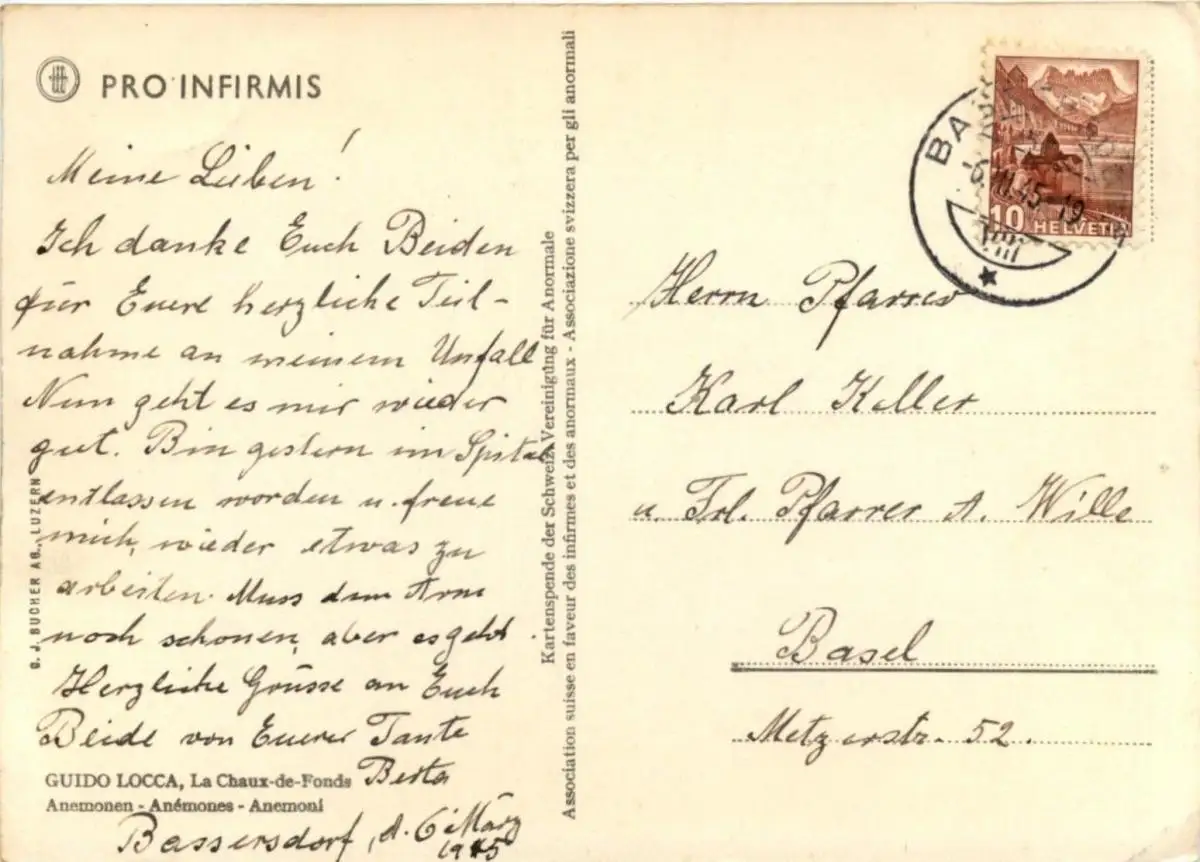 PRO INFIRMIS
Meine Lieben!
Ich danke Euch Beiden
für Euere herzliche Teil-
nahme an meinem Unfall
Nun geht es mir wieder
gut. Bin gestern im Spital
entlassen worden u. freue
mich, wieder etwas zu
arbeiten. Muss dem Arm
noch schonen, aber es geht
Herzliche Grüsse an Euch
Beide von Euerer Tante
Berta
GUIDO LOCCA, La Chaux-de-Fonds
Anemonen - Anémones - Anemoni
Bassersdorf, d. 6. März
1945
C. J. BUCHER AG., LUZERN
Kartenspende der Schweiz. Vereinigung für Anormale
Association suisse en faveur des infirmes et des anormaux - Associazione svizzera per gli anormali
10 HELVETIA
-6.III.45-19
VIII
Herrn Pfarrer
Karl Keller
u. Frl. Pfarrer A. Wille
Basel
Metzerstr. 52.